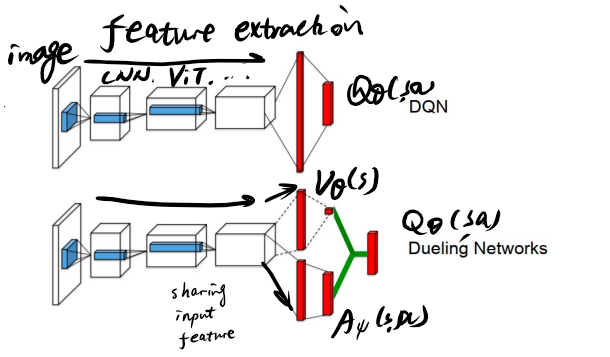 feature extraction
image
CNN. ViT. ...
Qθ(s,a)
DQN
Vθ(s)
Qθ(s,a)
Dueling Networks
sharing
input
feature
Aψ(s,a)